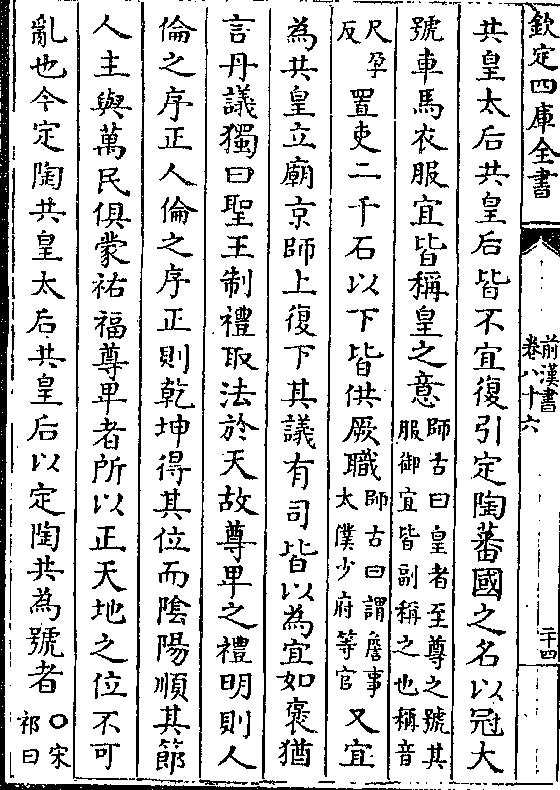 欽定四庫全書
前漢書
卷八十六
二十四
共皇太后共皇后皆不宜復引定陶蕃國之名以冠大
號車馬衣服宜皆稱皇之意師古曰皇者至尊之號其
服御宜皆副稱之也稱音
尺孕
反置吏二千石以下皆供厥職師古曰謂詹事
太僕少府等官又宜
為共皇立廟京師上復下其議有司皆以為宜如褒猶
言丹議獨曰聖王制禮取法於天故尊卑之禮明則人
倫之序正人倫之序正則乾坤得其位而陰陽順其節
人主與萬民俱蒙祐福尊卑者所以正天地之位不可
亂也今定陶共皇太后共皇后以定陶共為號者○宋
祁曰